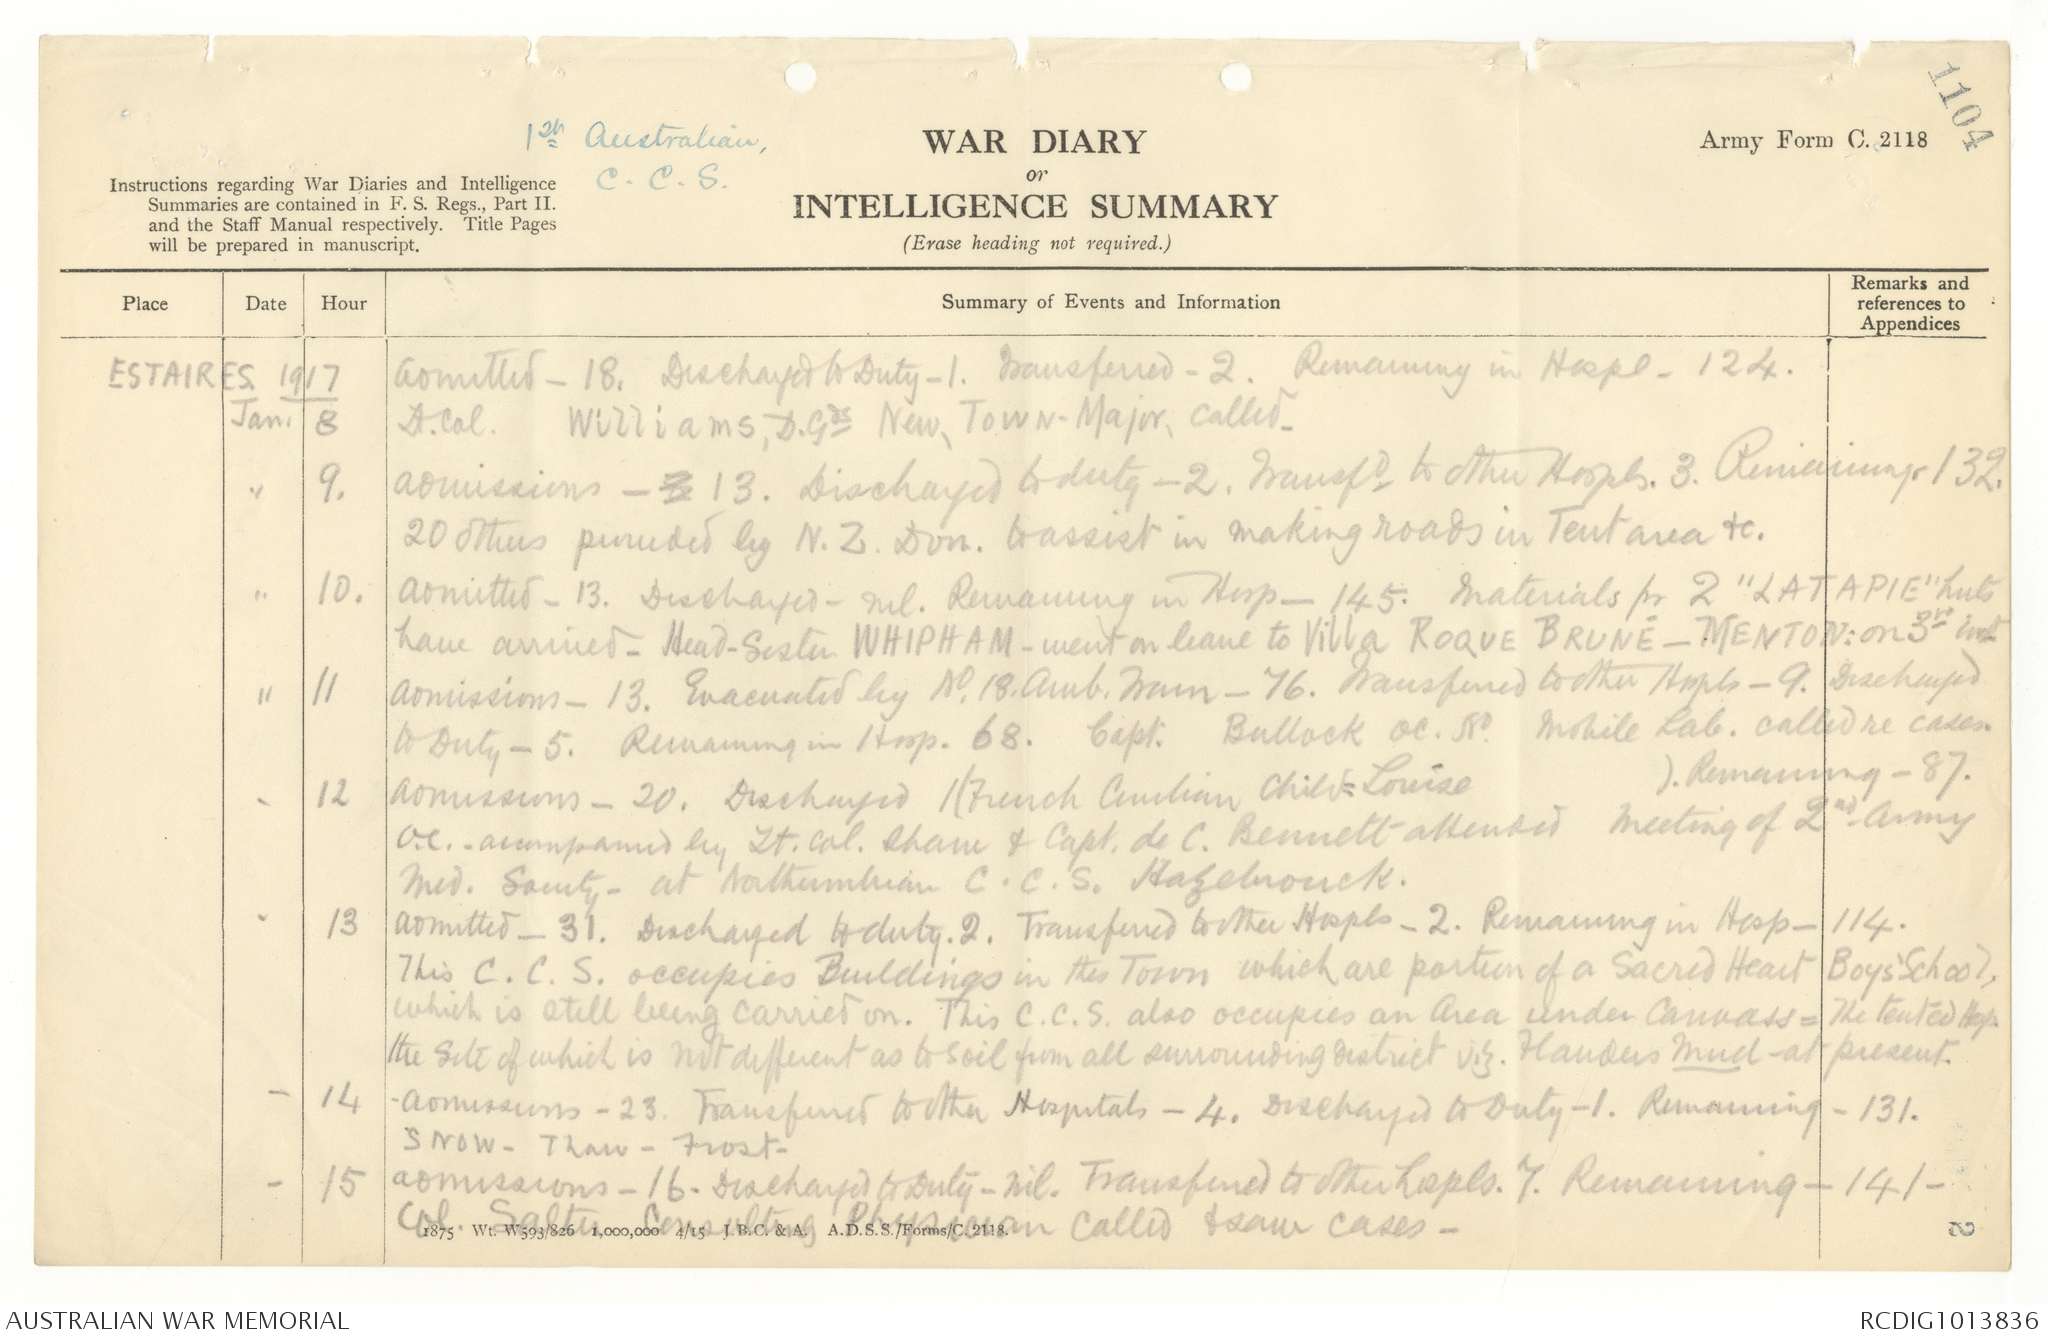 1104
1st Australian,
C. C. S.
WAR DIARY
or
INTELLIGENCE SUMMARY
(Erase heading not required.)
Army Form C. 2118
Instructions regarding War Diaries and Intelligence
Summaries are contained in F. S. Regs., Part II.
and the Staff Manual respectively. Title Pages
will be prepared in manuscript.
Place Date Hour Summary of Events and Information Remarks and references to Appendices
ESTAIRES. 1917 Admitted - 18. Discharged to Duty - 1. Transferred - 2. Remaining in Hospl - 124.
Jan. 8 Lt. Col. Williams, D.Gds New, Town-Major, called -
" 9. Admissions - 13. Discharged to duty - 2. Transfd to other Hospls. 3. Remaining 132.
20 others provided by N. Z. Divn. to assist in making roads in Tent area &c.
" 10. Admitted - 13. Discharged - nil. Remaining in Hosp - 145. Materials for 2 "LATAPIE" huts
have arrived - Head-Sister WHIPHAM - went on leave to Villa ROQUE BRUNE - MENTON: on 3rd inst
" 11 Admissions - 13. Evacuated by No. 18. Amb. Train - 76. Transferred to other Hospls - 9. Discharged
to Duty - 5. Remaining in Hosp. 68. Capt. Bullock OC. No Mobile Lab. called re cases.
" 12 Admissions - 20. Discharged 1 (French Civilian Child = Louise ). Remaining - 87.
O.C. - accompanied by Lt. Col. Shaw & Capt. de C. Bennett attended Meeting of 2nd Army
Med. Society - at Northumbrian C. C. S. Hazebrouck.
" 13 Admitted - 31. Discharged to duty. 2. Transferred to other Hospls - 2. Remaining in Hosp - 114.
This C. C. S. occupies Buildings in this Town which are portion of a Sacred Heart Boys' School,
which is still being carried on. This C.C.S. also occupies an Area under Canvass = The tented Hosp.
the site of which is not different as to soil from all surrounding district viz. Flanders Mud - at present.
- 14 - Admissions - 23. Transferred to other Hospitals - 4. Discharged to Duty - 1. Remaining - 131.
SNOW - Thaw - Frost -
- 15 Admissions - 16 - Discharged to Duty - nil. Transferred to other hospls. 7. Remaining - 141 -
Col. Salter Consulting Physician called & saw cases -
1875 Wt. W593/826 1,000,000 4/15 J.B.C. & A. A.D.S.S./Forms/C. 2118.
2
AUSTRALIAN WAR MEMORIAL
RCDIG1013836